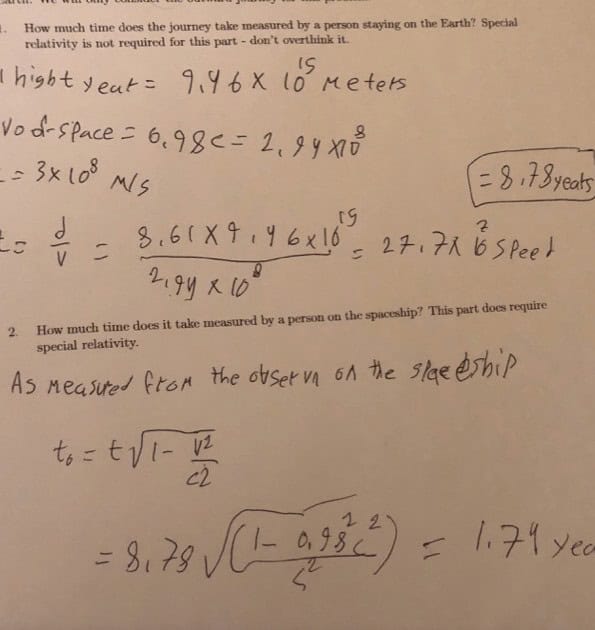 How much time does the journey take measured by a person staying on the Earth? Special
relativity is not required for this part - don't overthink it.
1 hight year = 9.46 x 10^15 meters
V od-space = 0.98c = 2.94 x10^8
= 3x10^8 M/s
= 8.78 years
t = d/v = 8.61 x 9.46 x10^15 / 2.94 x 10^8 = 27.7x 10^7
2. How much time does it take measured by a person on the spaceship? This part does require
special relativity.
As Measured from the observn on the ship
t₀ = t√1- v2/c2
= 8.78 √(1- 0.98^2c^2/c^2) = 1.74 yea